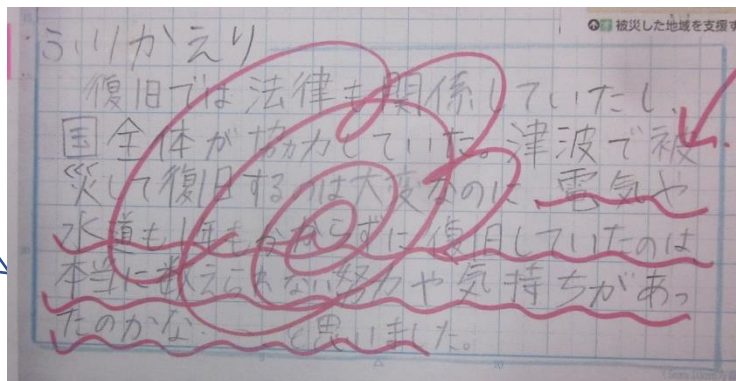 被災した地域を支援す
ふりかえり
復旧では法律も関係していたし、
国全体が協力していた。津波で被
災して復旧するのは大変なのに電気や
水道も1年もかからずに復旧していたのは
本当に数えられない努力や気持ちがあっ
たのかな……と思いました。